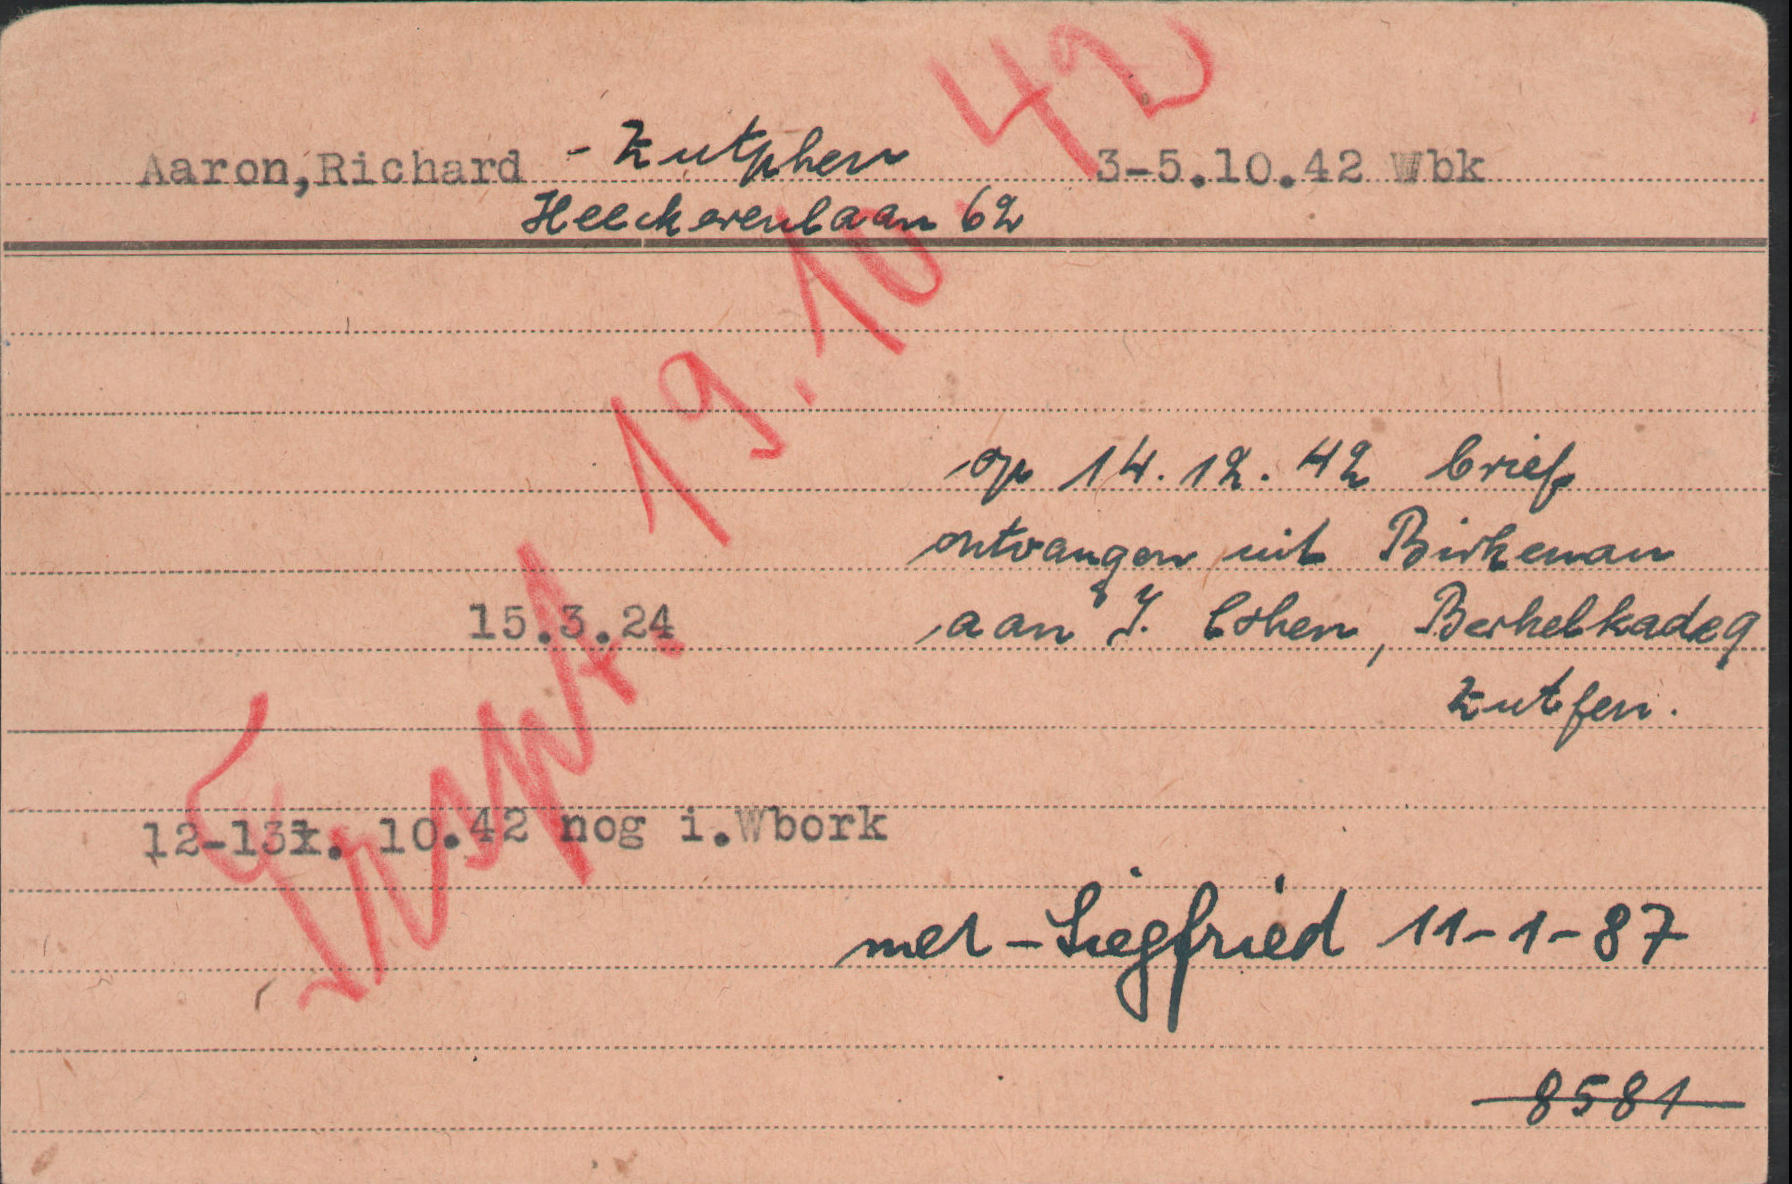 Aaron, Richard - Zutphen 3-5.10.42 Wbk
Heeckerenlaan 62
19.10.42
op 14.12.42 brief
ontvangen uit Birkenau
15.3.24
aan J. Cohen, Berkelkade 9
Zutfen.
12-13. 10.42 nog i.Wbork
met - Siegfried 11-1-87
8581